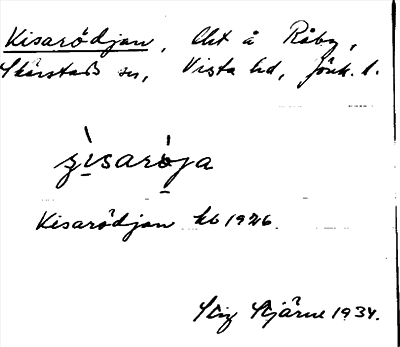 Kisarödjan, Lht å Råby,
Skärstads sn, Vista hd, Jönk. l.
ʒìsarò̱ja
Kisarödjan kb 1926.
Stig Stjärne 1934.